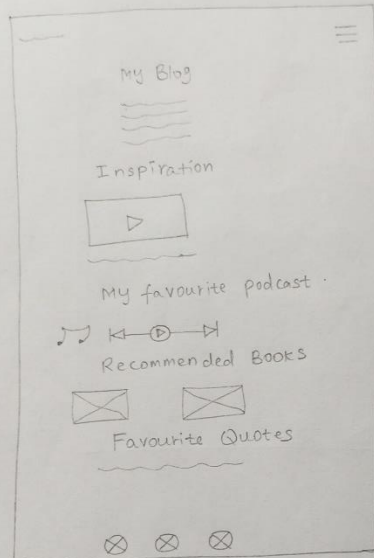 My Blog
Inspiration
My favourite podcast.
Recommended Books
Favourite Quotes